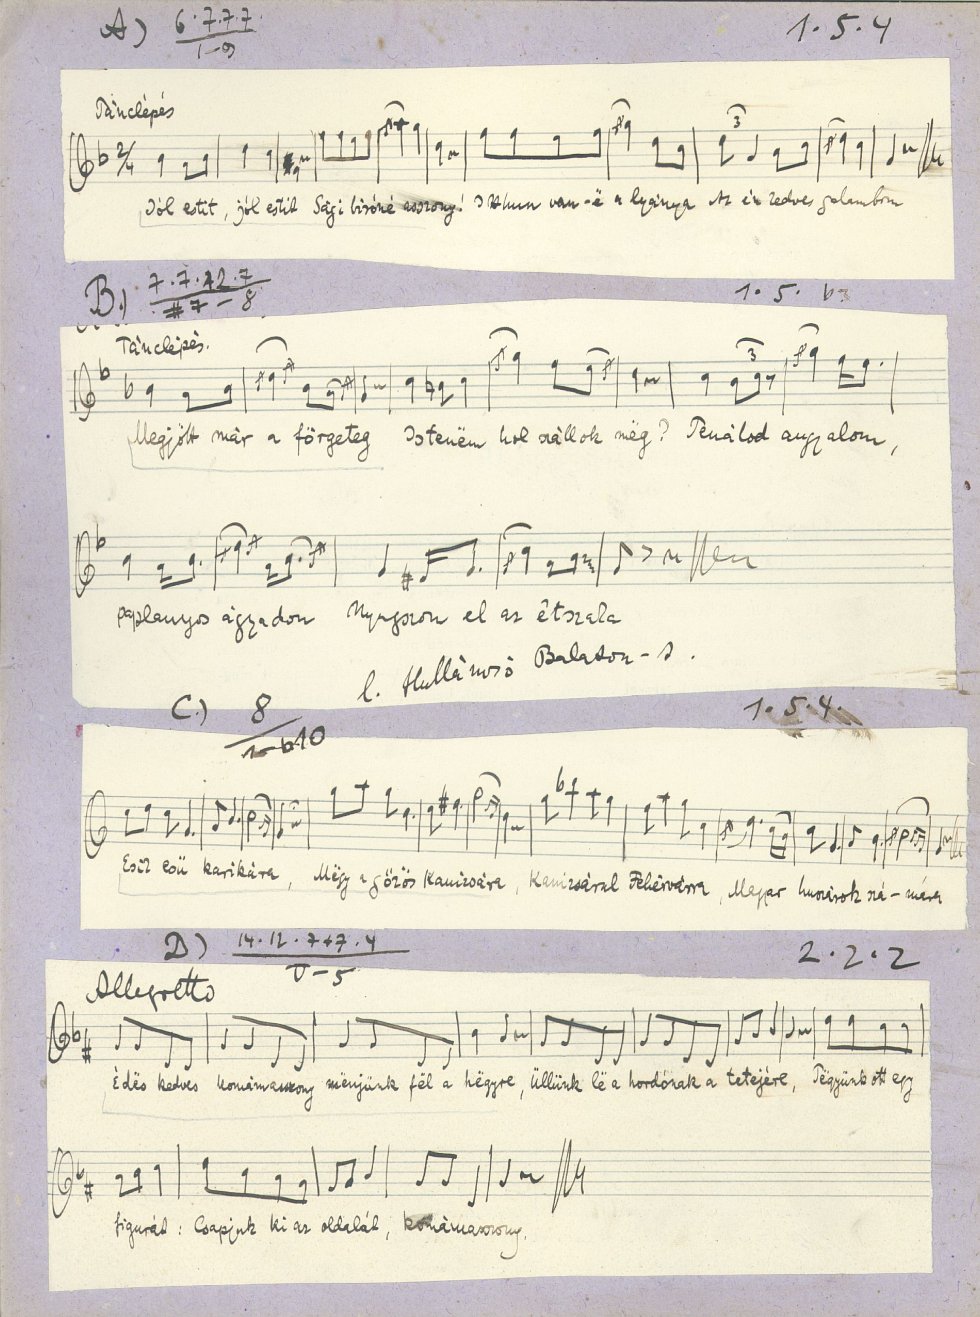 A) 6.7.7.7. 1.5.4
1-9
Tánclépés
2/4
Jól estit, jól estit Sági biróné asszony! Itthun van-ë a lyánya Az én kedves galambom
B.) 7.7.12.7 1.5.
#7-8
Tánclépés.
Megjött már a förgeteg Istenëm hol szállok mëg? Tenálod angyalom,
paplanyos ágyadon Nyugszon el az étszala
l. Hullámzó Balaton-t.
C.) 8 1.5.4.
1-b10
Esik esü karikára, Mëgy a gőzös Kanizsára, Kanizsárul Fehérvárra, Magyar huszárok szá-mára
D) 14.12.7+7.4 2.2.2
V-5
Allegretto
Édës kedves komámasszony mënjünk fël a hëgyre, Üllünk lë a hordónak a tetejére, Tëgyünk ott egy
figurát: Csapjuk ki az oldalát, komámasszony.